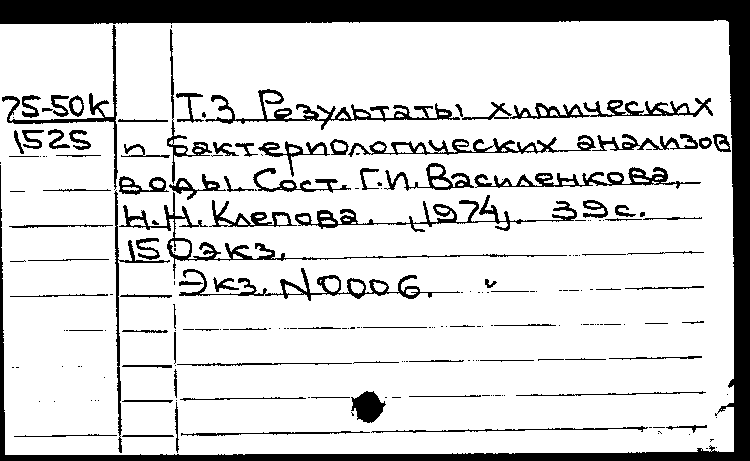 75-50к
1525
Т.3. Результаты химических
и бактериологических анализов
воды. Сост. Г.И. Василенкова,
Н.Н. Клепова. [1974]. 39с.
150экз.
Экз. N0006.